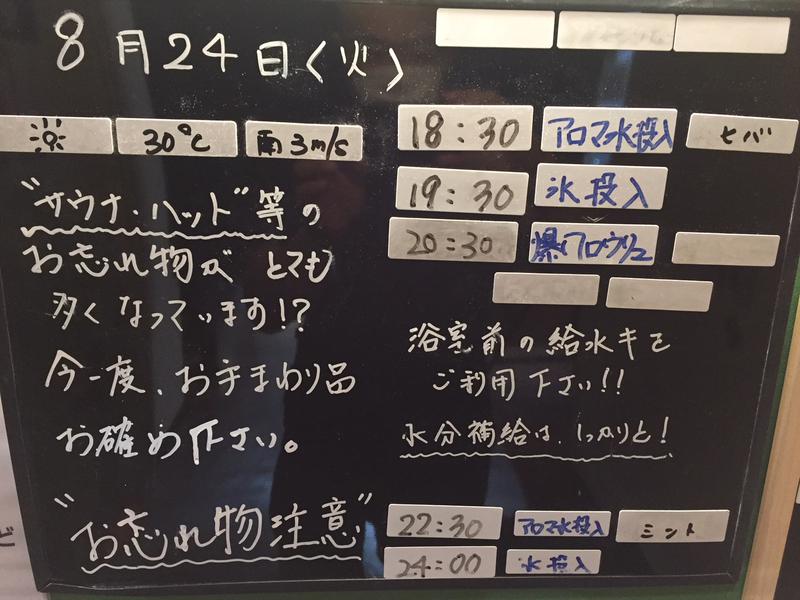 8月24日〈火〉
30℃
南3m/s
"サウナ・ハット"等の
お忘れ物が とても
多くなっています!?
今一度、お手まわり品
お確め下さい。
"お忘れ物注意"
18:30 アロマ水投入 ヒバ
19:30 氷投入
20:30 爆ロウリュ
浴室前の給水キを
ご利用下さい!!
水分補給は、しっかりと!
22:30 アロマ水投入 ミント
24:00 氷投入
ど